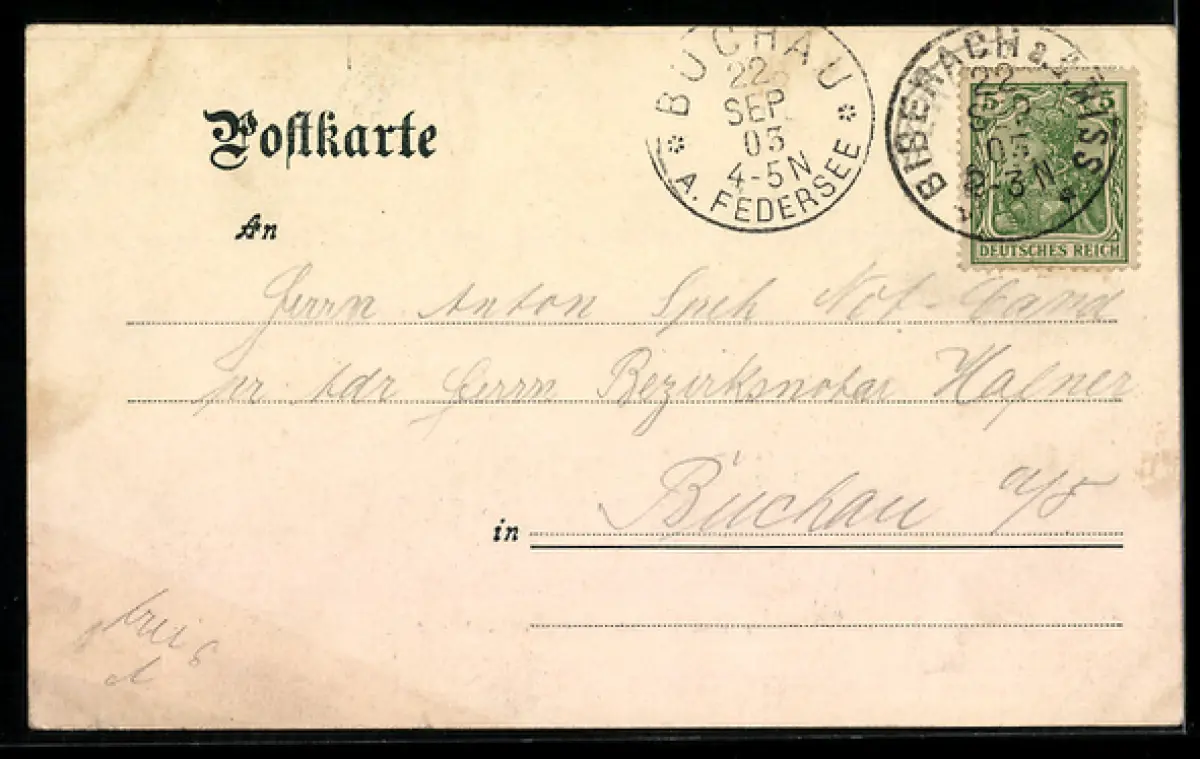 Postkarte
BUCHAU
22
SEP.
03
4-5N
A. FEDERSEE
BIBERACH a.d. RISS
22
SEP
03
2-3N
5
5
DEUTSCHES REICH
An
Herrn Anton Not-
Herrn Bezirksnotar Hafner
in Buchau a/F